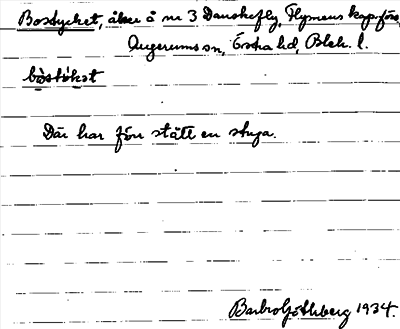 Bostycket, åker å nr 3 Danskefly, Flymens kapförs.
Augerums sn, Östra hd, Blek. l.
bòstə̀kət
Där har förr stått en stuga.
Barbro Götherberg 1934.